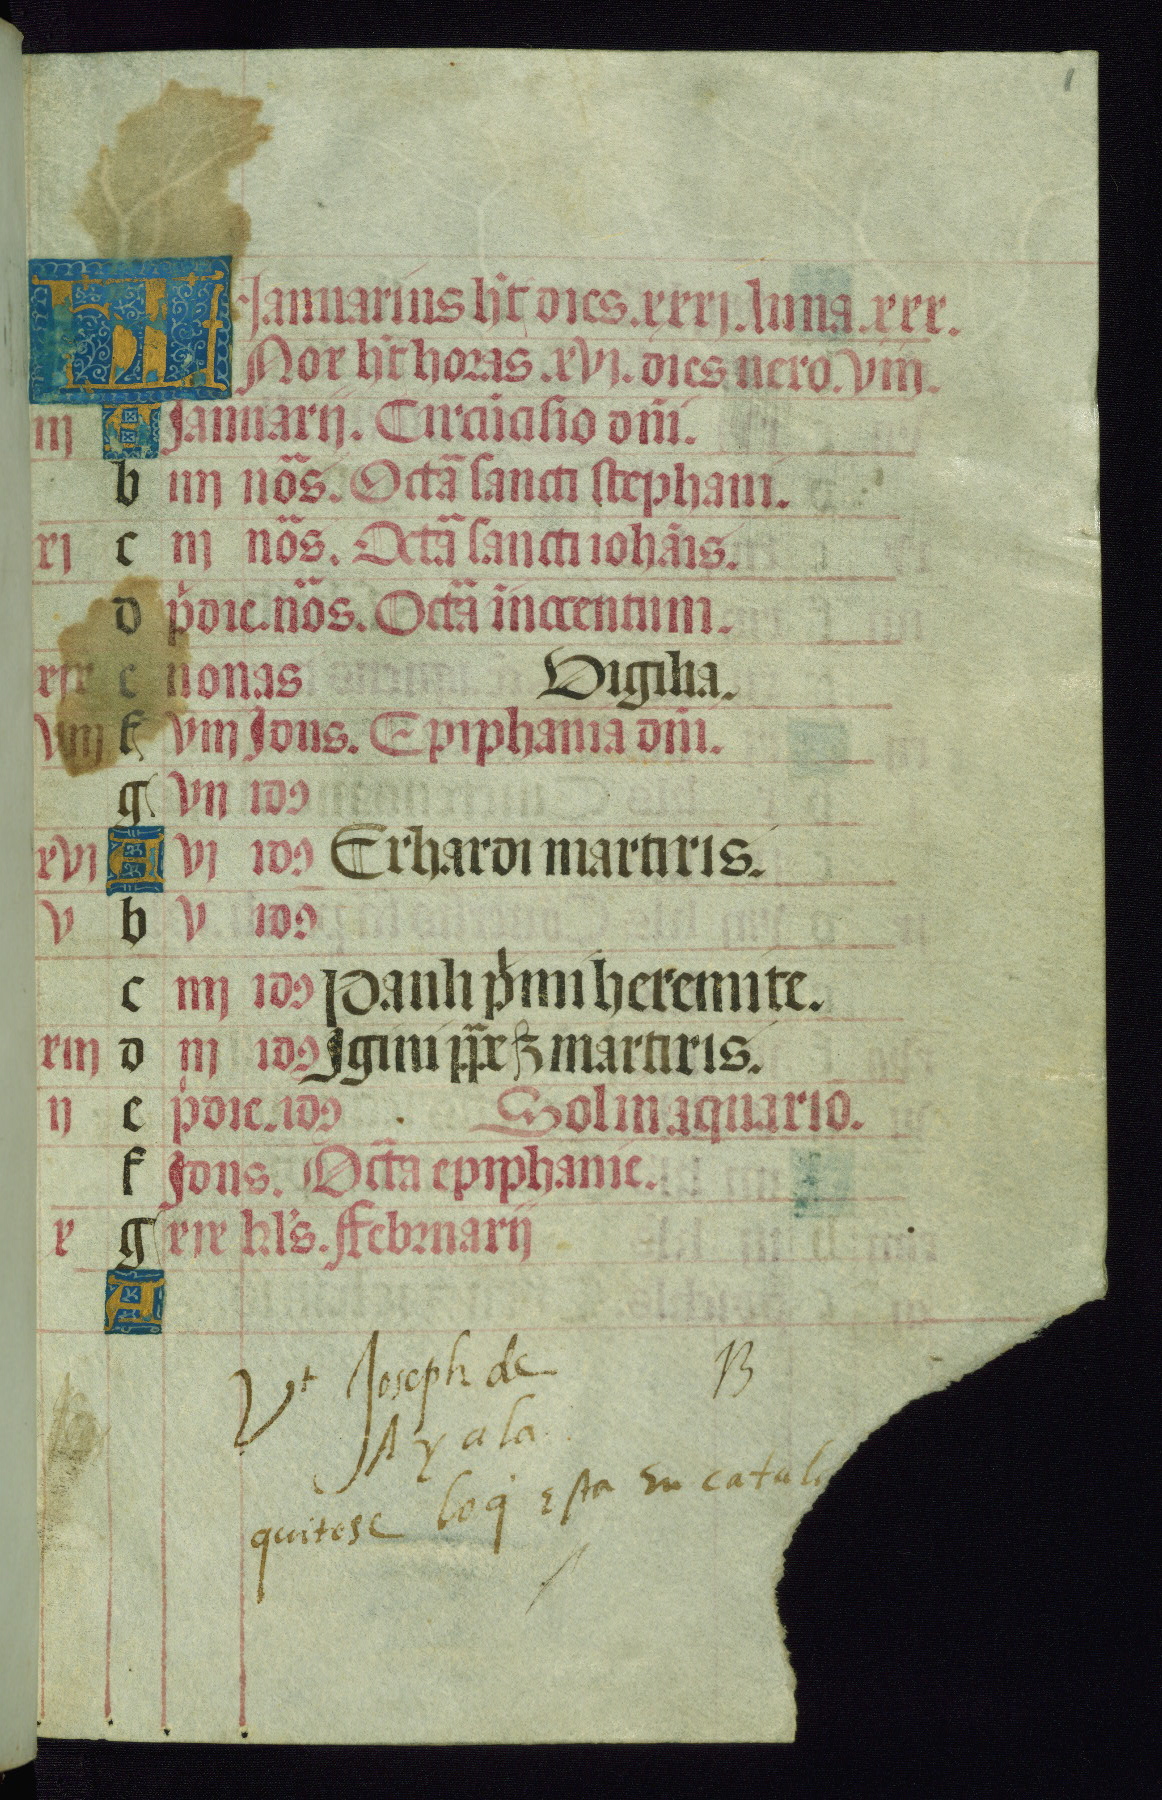 1
KL Januarius ht dies .xxxj. luna .xxx.
Nox ht horas .xvj. dies uero .viij.
iij A Januarij. Circucisio dni.
b iiij nos. Octa sancti stephani.
xj c iij nos. Octa sancti iohais.
d pdie. nos. Octa inocentum.
xix e nonas Vigilia.
viij f viij Idus. Epiphania dni.
g vij idꝯ
xvj A vj idꝯ Erhardi martiris.
v b v idꝯ
c iiij idꝯ Pauli pmi heremite.
xiij d iij idꝯ Igini ppe & martiris.
ij e pdie. idꝯ Sol in aquario.
f Idus. Octa epiphanie.
x g xix kls. ffebruarij
A
Vt Joseph de 13
Ayala
quitese loq esta en catalo